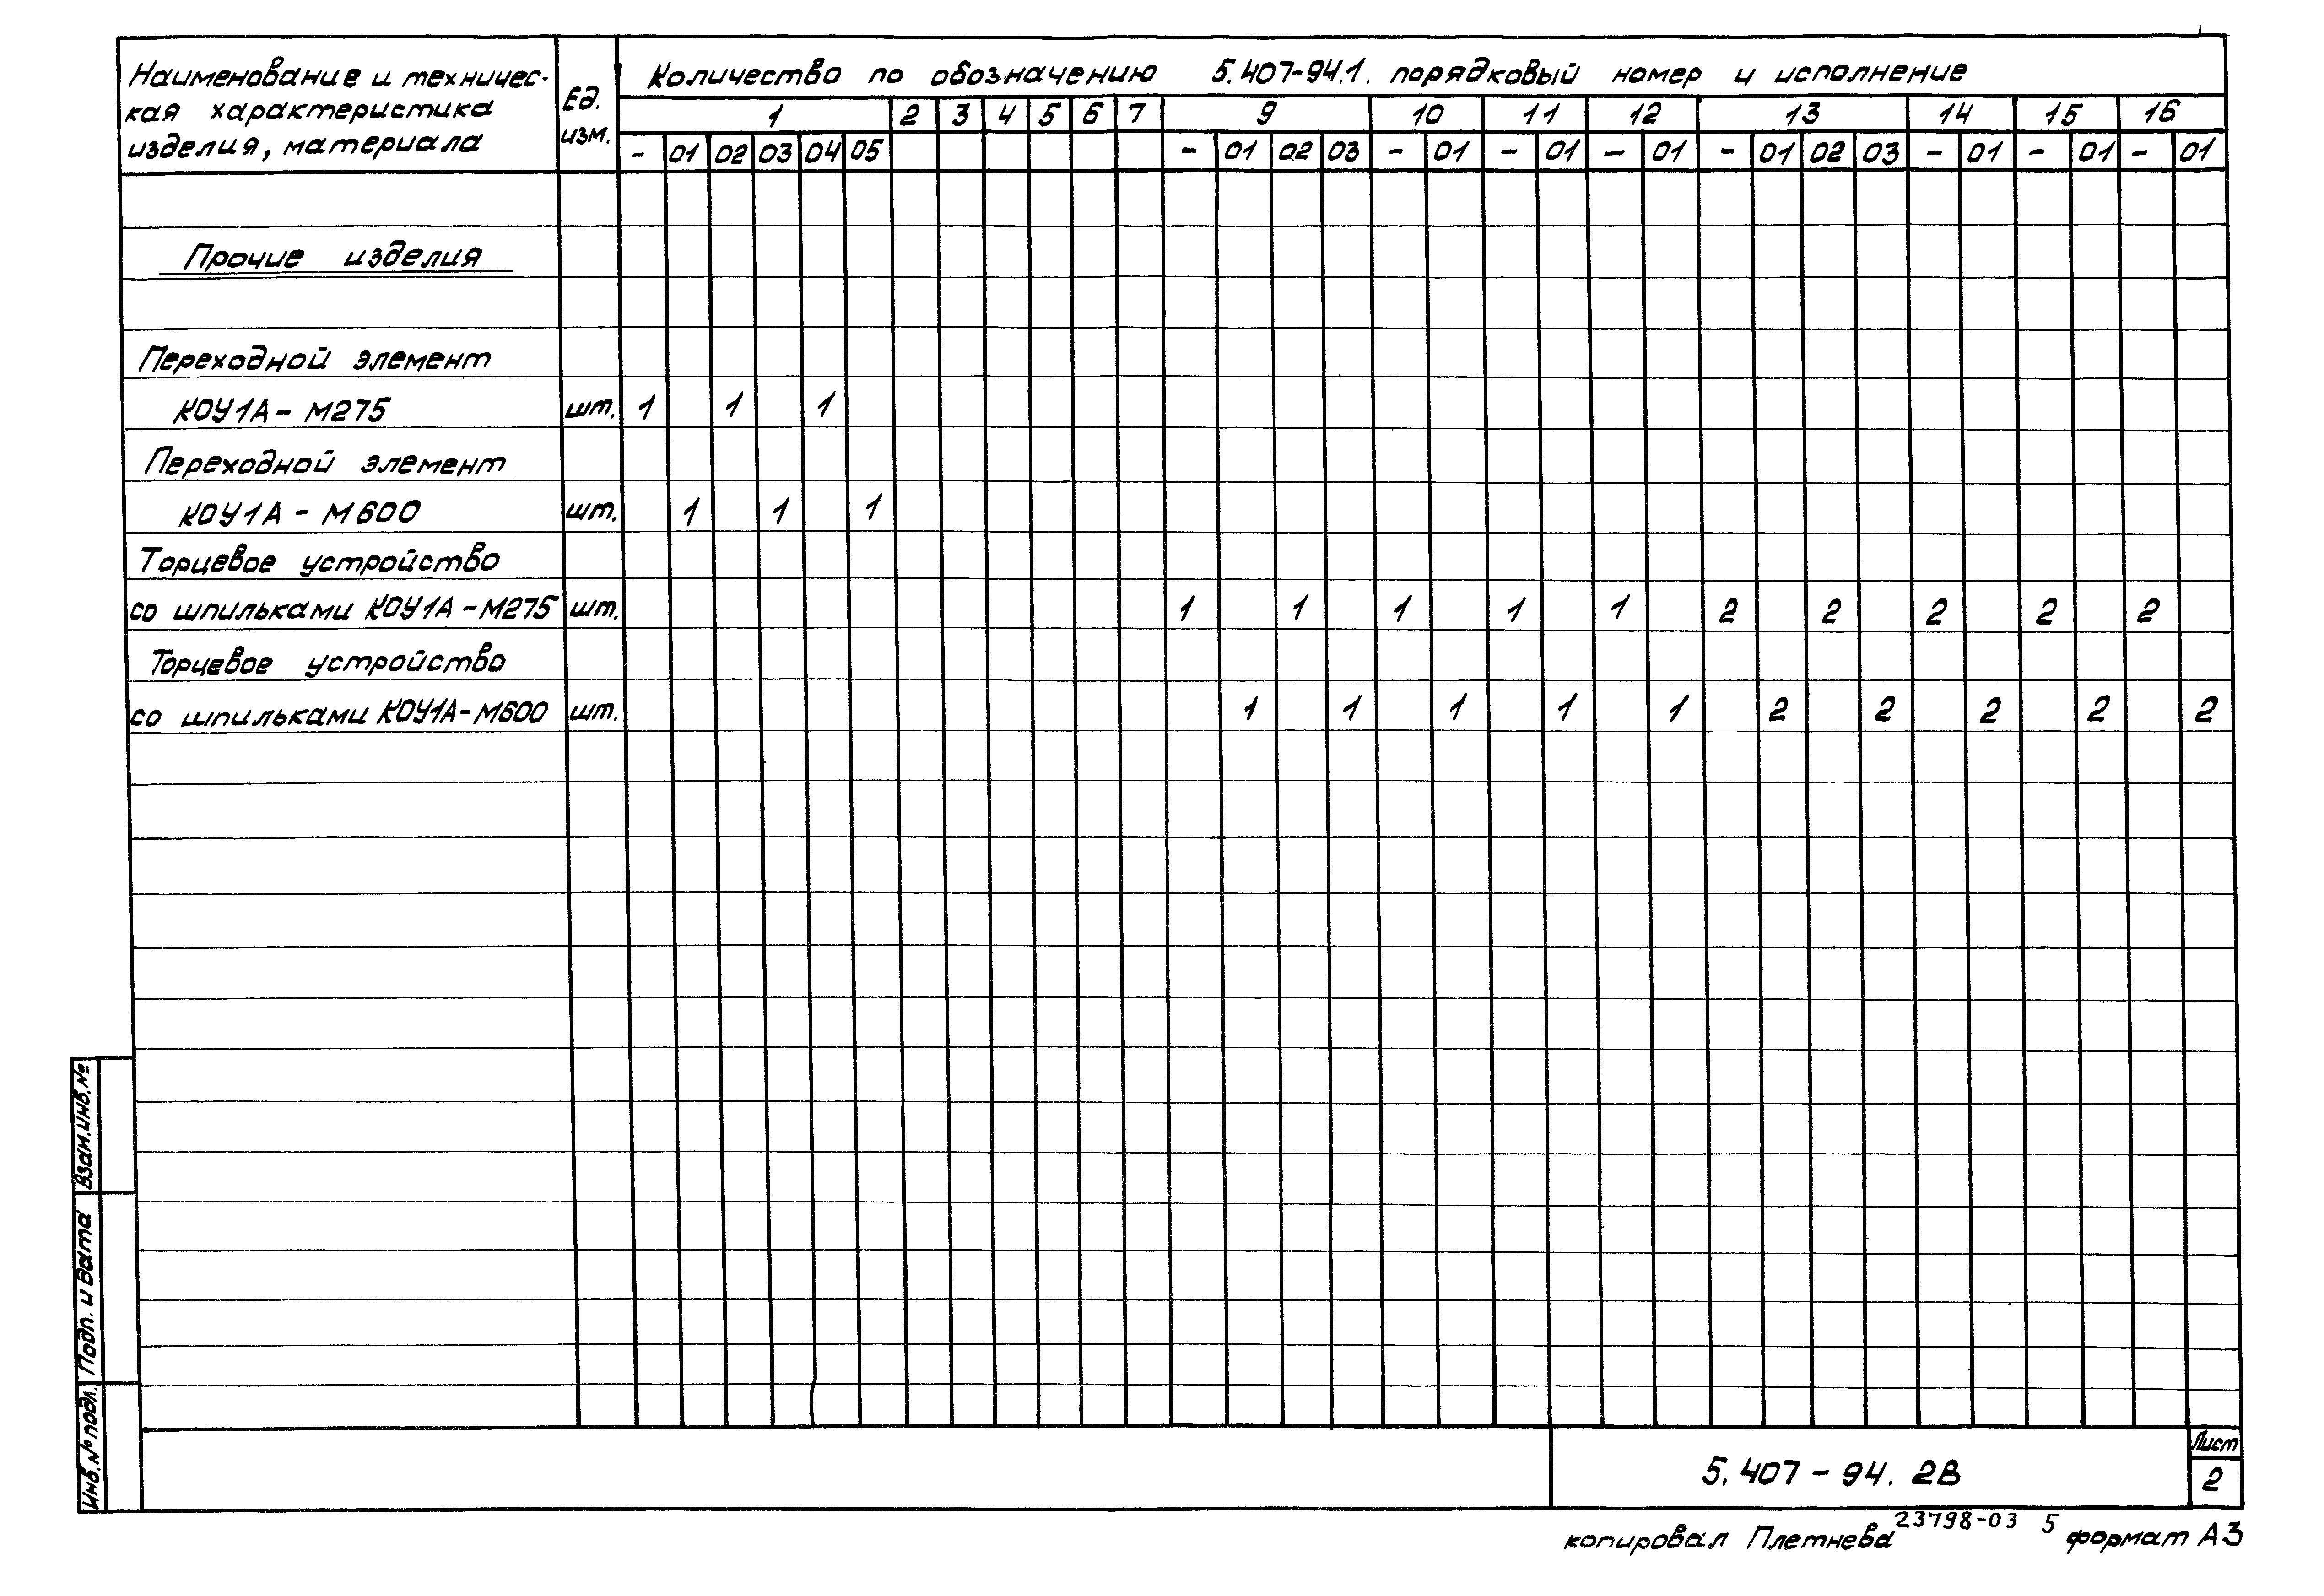 Наименование и техничес- Ед. Количество по обозначению 5.407-94.1. порядковый номер и исполнение
кая характеристика изм. 1 2 3 4 5 6 7 9 10 11 12 13 14 15 16
изделия, материала - 01 02 03 04 05 - 01 02 03 - 01 - 01 - 01 - 01 02 03 - 01 - 01 - 01
Прочие изделия
Переходной элемент
КОУ1А - М275 шт. 1 1 1
Переходной элемент
КОУ1А - М600 шт. 1 1 1
Торцевое устройство
со шпильками КОУ1А - М275 шт. 1 1 1 1 1 2 2 2 2 2
Торцевое устройство
со шпильками КОУ1А - М600 шт. 1 1 1 1 1 2 2 2 2 2
Взам.инв.№
Подп. и дата
Инв.№ подл.
5.407 - 94. 2В
Лист
2
копировал Плетнева 23798-03 5 формат А3